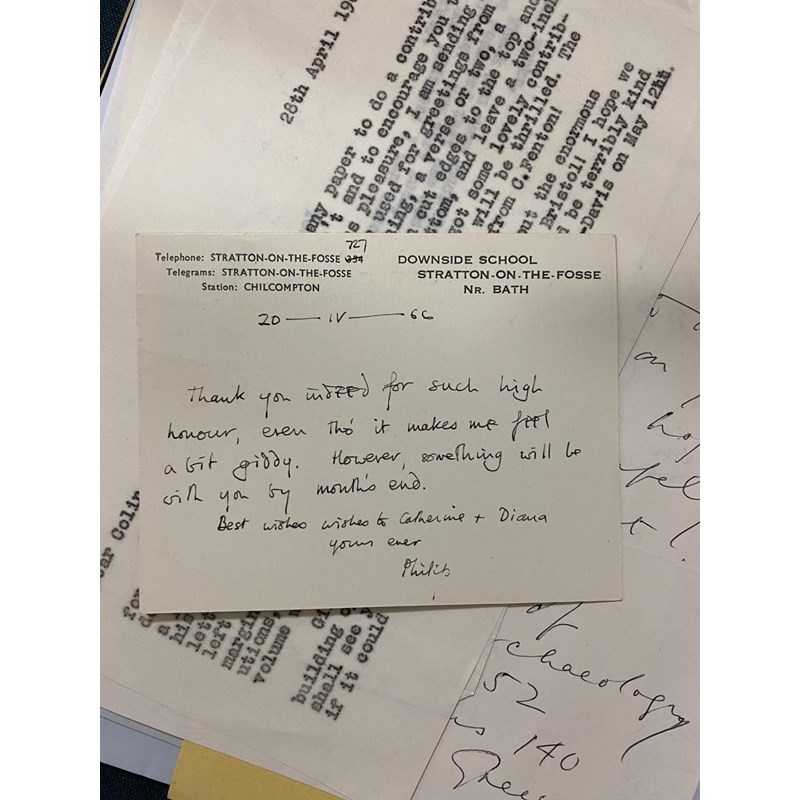 28th April 19
any paper to do a contrib
't and to encourage you t
s pleasure, I am sending
used for greetings from
ing, a verse or two, a
cut edges to the top and
tom, and leave a two-inch
got some lovely contrib-
will be thrilled. The
from C.Fenton!
out the enormous
Bristol! I hope we
d be terribly kind
-Davis on May 12th.
Telephone: STRATTON-ON-THE-FOSSE 727
Telegrams: STRATTON-ON-THE-FOSSE
Station: CHILCOMPTON
DOWNSIDE SCHOOL
STRATTON-ON-THE-FOSSE
NR. BATH
20 — IV — 66
Thank you indeed for such high
honour, even tho' it makes me feel
a bit giddy. However, something will be
with you by month's end.
Best wishes wishes to Catherine + Diana
yours ever
Philip
ar Colin
for
a
his
lett
left
margin
utions,
volume
building
shall see y
if it could
an
of
chaeology
52
is 140